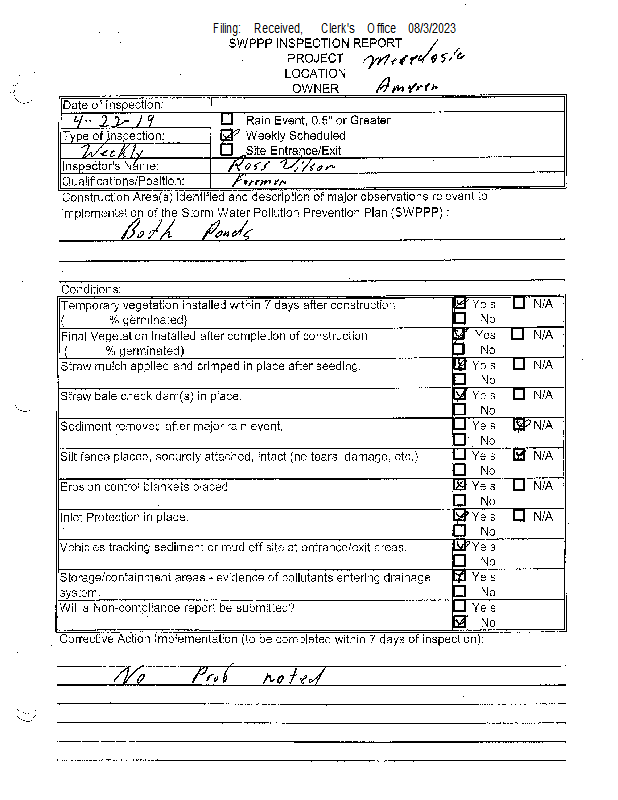 Filing: Received, Clerk's Office 08/3/2023
SWPPP INSPECTION REPORT
PROJECT Meredosia
LOCATION
OWNER Ameren
Date of Inspection:
4-22-19
Rain Event, 0.5" or Greater
Type of Inspection:
Weekly Scheduled
Weekly
Site Entrance/Exit
Inspector's Name: Ross Wilson
Qualifications/Position: Foreman
Construction Area(s) identified and description of major observations relevant to
implementation of the Storm Water Pollution Prevention Plan (SWPPP) :
Both Ponds
Conditions:
Temporary vegetation installed within 7 days after construction Yes N/A
( % germinated) No
Final Vegetation installed after completion of construction Yes N/A
( % germinated) No
Straw mulch applied and crimped in place after seeding. Yes N/A
No
Straw bale check dam(s) in place. Yes N/A
No
Sediment removed after major rain event. Yes N/A
No
Silt fence placed, securely attached, intact (no tears, damage, etc.) Yes N/A
No
Erosion control blankets placed Yes N/A
No
Inlet Protection in place. Yes N/A
No
Vehicles tracking sediment or mud off site at entrance/exit areas. Yes
No
Storage/containment areas - evidence of pollutants entering drainage Yes
system. No
Will a Non-compliance report be submitted? Yes
No
Corrective Action Implementation (to be completed within 7 days of inspection):
No Prob noted